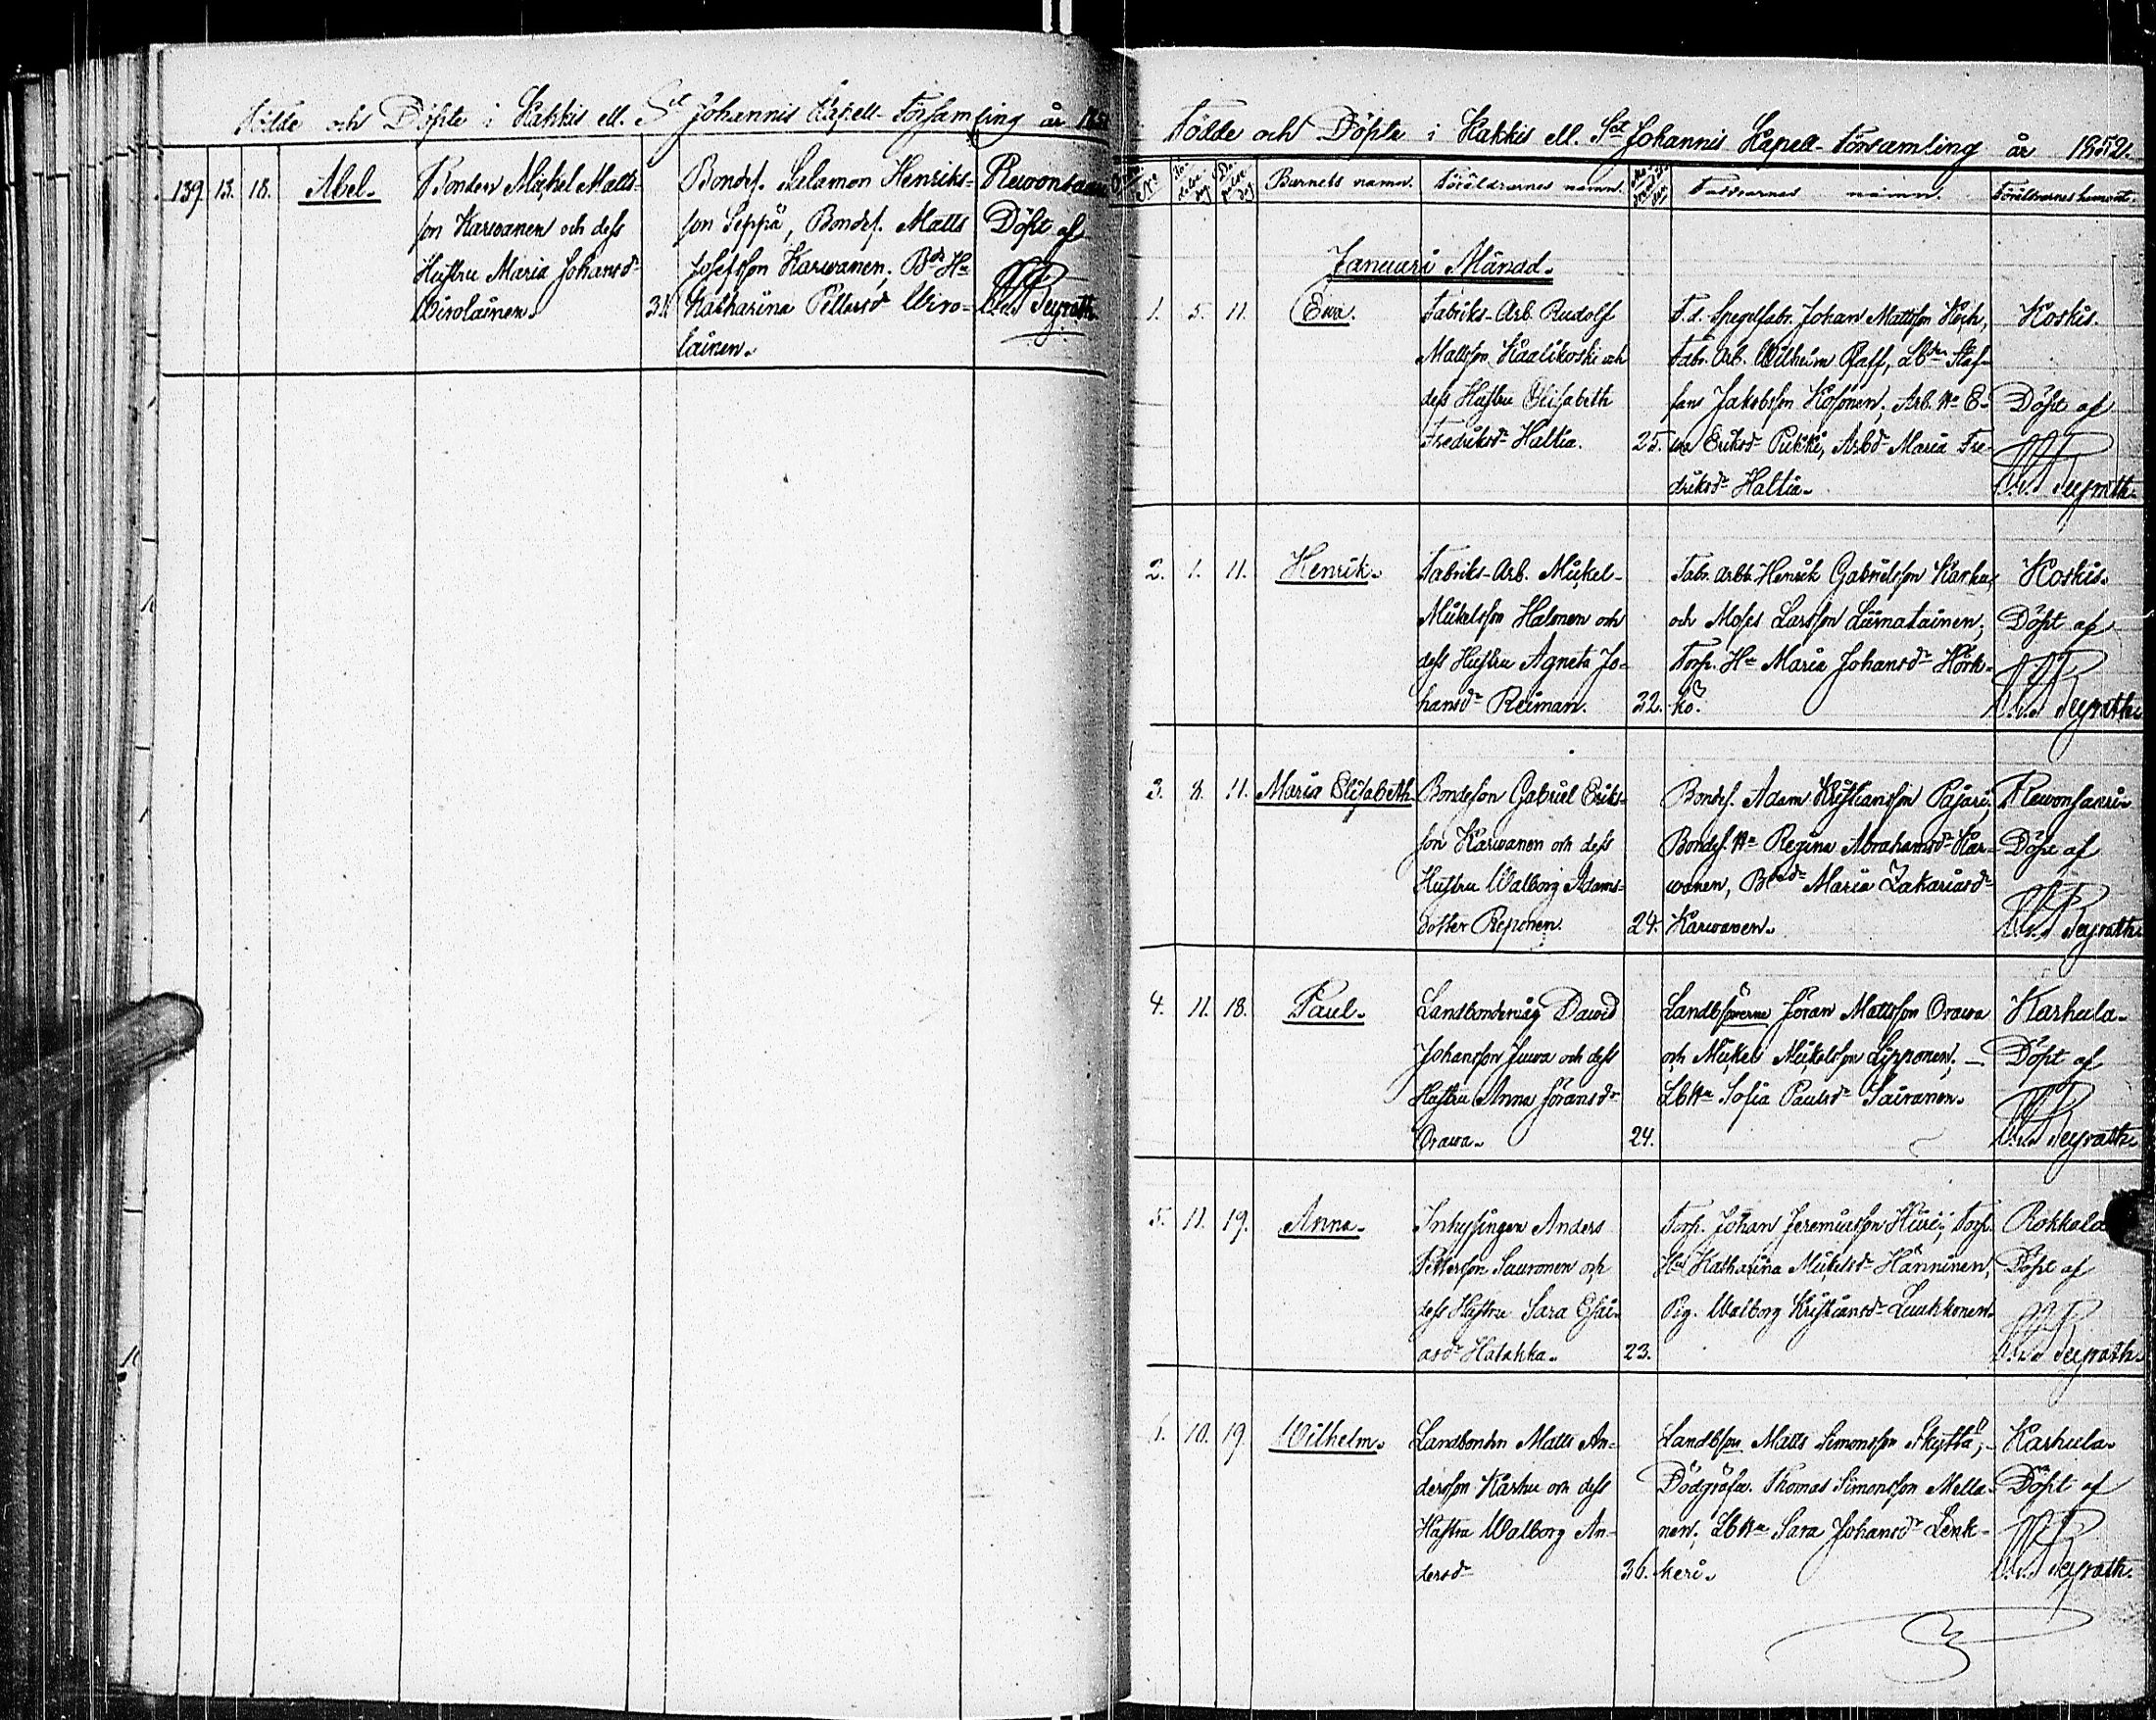 Födde och Döpte i Kakkis ell. Sct Johannis Kapell-Församling år 1851
139. 13. 18. Abel. Bonden Mickel Matts-
son Karwanen och dess
Hustru Maria Johansdr
Wirolainen. 31.
Bondes. Salamon Henriks-
son Seppä, Bondes. Matts
Josefsson Karwanen; Bdr Hu
Katharina Pettersdr Wiro-
lainen.
Rewonsaari
Döpt af
Födde och Döpte i Kakkis ell. Sct Johannis Kapell-Församling år 1852.
No Födelsedag Döpelsedag Barnets namn. Föräldrarnes namn. Faddrarnes namn. Föräldrarnes hemvist.
Januari Månad.
1. 5. 11. Ewa. Fabriks-Arb. Rudolf
Mattsson Kaalikoski och
dess Hustru Elisabeth
Fredriksdr Haltia. 25.
F.d. Spegelfabr. Johan Mattsson Koch,
Fabr. Arb. Wilhelm Pfaff, Lbdn Staf-
fans Jakobsson Kosonen; Arb. Hu E-
wa Eriksdr Pukki, Arbdr Maria Fre-
driksdr Haltia.
Koskis.
Döpt af
2. 1. 11. Henrik. Fabriks-Arb. Mickel
Mickelsson Halonen och
dess Hustru Agneta Jo-
hansdr Reiman. 32.
Fabr. arbb. Henrik Gabrielsson Karhu,
och Moses Larsson Liimatainen;
Torp. Hu Maria Johansdr Hörk-
kö.
Koskis.
Döpt af
3. 8. 11. Maria Elisabeth. Bondeson Gabriel Eriks-
son Karwanen och dess
Hustru Walborg Adams-
dotter Reponen. 24.
Bondes. Adam Kristiansson Pajari;
Bondes. Hu Regina Abrahamsdr Kar-
wanen, Bdedr Maria Zakariasdr
Karwanen.
Rewonsaari
Döpt af
4. 11. 18. Paul. Landbondemåg David
Johansson Juwa och dess
Hustru Anna Göransdr
Orawa. 24.
Landbsönerne Göran Mattsson Orawa
och Mickel Mickelsson Lipponen; —
LbHu Sofia Paulsdr Sairanen.
Karhula.
Döpt af
5. 11. 19. Anna. Inhysingen Anders
Pettersson Sauronen och
dess Hustru Sara Esai-
asdr Hatakka. 23.
Torp. Johan Jeremiasson Hiiri; Torp.
Hu Katharina Mickelsdr Hänninen,
Pig. Walborg Kristiansdr Luukkonen.
Rokkala
Döpt af
6. 10. 19. Wilhelm. Landbonden Matts An-
dersson Karhu och dess
Hustru Walborg An-
dersdr 36.
Landbson Matts Simonsson Skyttä;
Dödgräfa. Thomas Simonsson Mella-
nen; LbHu Sara Johansdr Lenk-
keri.
Karhula.
Döpt af